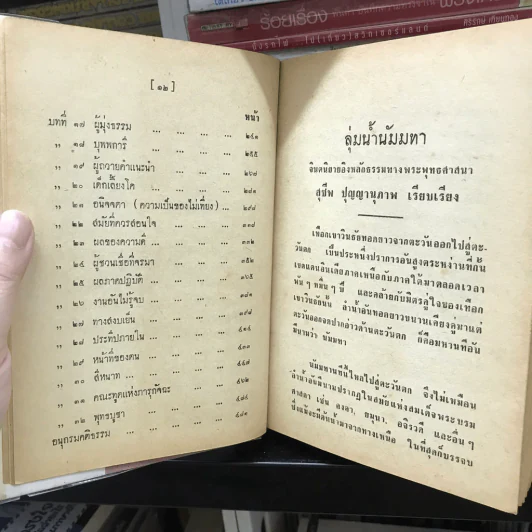 ร้อยเรื่อง
[ ๑๒ ]
หน้า
บทที่ ๑๗ ผู้มุ่งธรรม ... ... ... ... ๒๔๑
,, ๑๘ บุพพการี ... ... ... ... ๒๕๕
,, ๑๙ ผู้ถวายคำแนะนำ ... ... ... ๒๖๗
,, ๒๐ เด็กเลี้ยงโค ... ... ... ๒๘๑
,, ๒๑ อนิจจตา (ความเป็นของไม่เที่ยง) ... ๒๙๘
,, ๒๒ สมัยที่ควรสอนใจ ... ... ... ๓๑๗
,, ๒๓ ผลของความดี ... ... ... ๓๓๒
,, ๒๔ ผู้ชวนเชื่อที่จรมา ... ... ... ๓๕๒
,, ๒๕ ผลภาคปฏิบัติ ... ... ... ๓๖๕
,, ๒๖ งานอันไม่รู้จบ ... ... ...
,, ๒๗ ทางสงบเย็น ... ... ... ๓๙๘
,, ๒๘ ประทีปภายใน ... ... ... ๔๑๔
,, ๒๙ หน้าที่ของตน ... ... ...
,, ๓๐ สีหนาท ... ... ... ...
,, ๓๑ คณะทูตแห่งภารุกัจฉะ ... ...
,, ๓๒ พุทธบูชา ... ... ...
อนุกรมคติธรรม ... ... ...
ลุ่มน้ำนัมมทา
จินตนิยายอิงหลักธรรมทางพระพุทธศาสนา
สุชีพ ปุญญานุภาพ เรียบเรียง
เทือกเขาวินธัยทอดยาวจากตะวันออกไปสู่ตะ-
วันตก เป็นประหนึ่งปราการอันสูงตระหง่านที่กั้น
เขตแดนอินเดียภาคเหนือกับภาคใต้มาตลอดเวลา
พัน ๆ หมื่น ๆ ปี และคล้ายกับมิตรคู่ใจของเทือก
เขาวินธัยนั้น ลำน้ำอันทอดยาวขนานเคียงคู่มาแต่
ตะวันออกจดปากอ่าวด้านตะวันตก ก็คือมหานทีอัน
มีนามว่า นัมมทา
นัมมทานทีนี้ไหลไปสู่ตะวันตก จึงไม่เหมือน
ลำน้ำอันมีนามปรากฏในสมัยแห่งสมเด็จพระบรม
ศาสดา เช่น คงคา, ยมุนา, อจิรวดี และอื่น ๆ
ซึ่งแม้จะมีต้นน้ำมาจากทางเหนือ ในที่สุดก็บรรจบ